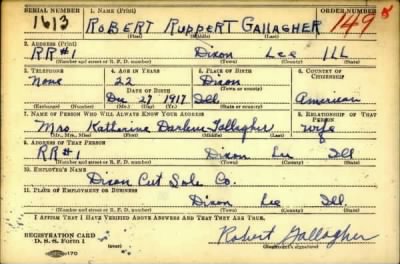 SERIAL NUMBER 1. NAME (Print) ORDER NUMBER
1613 ROBERT RUPPERT GALLAGHER 1495
(First) (Middle) (Last)
2. ADDRESS (Print)
RR#1 Dixon Lee ILL
(Number and street or R. F. D. number) (Town) (County) (State)
3. TELEPHONE 4. AGE IN YEARS 5. PLACE OF BIRTH 6. COUNTRY OF CITIZENSHIP
None 22 Dixon
DATE OF BIRTH (Town or county)
Dec 27 1917 Ill American
(Exchange) (Number) (Mo.) (Day) (Yr.) (State or country)
7. NAME OF PERSON WHO WILL ALWAYS KNOW YOUR ADDRESS 8. RELATIONSHIP OF THAT PERSON
Mrs Katherine Darlene Gallagher wife
(Mr., Mrs., Miss) (First) (Middle) (Last)
9. ADDRESS OF THAT PERSON
RR#1 Dixon Lee Ill
(Number and street or R. F. D. number) (Town) (County) (State)
10. EMPLOYER'S NAME
Dixon Cut Sole Co.
11. PLACE OF EMPLOYMENT OR BUSINESS
Dixon Lee Ill.
(Number and street or R. F. D. number) (Town) (County) (State)
I AFFIRM THAT I HAVE VERIFIED ABOVE ANSWERS AND THAT THEY ARE TRUE.
REGISTRATION CARD
D. S. S. Form 1 Robert Gallagher
(Registrant's signature)